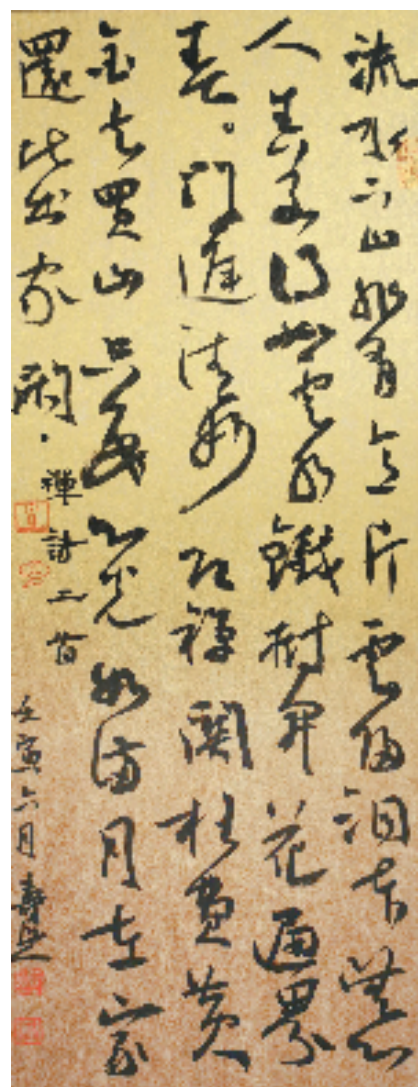 流水下山非有意片雲歸洞本無心
人生若得如雲水鐵樹開花遍界
春。禪關枉費黃
金去買山只要心光如滿月在家
還比出家閑
禪詩二首
壬寅六月